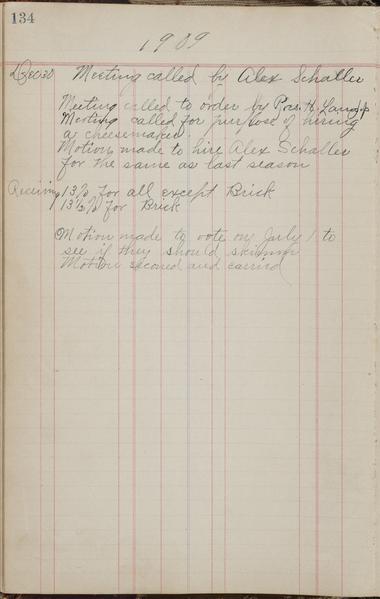 134
1909
Dec 30 Meeting called by Alex Schaller
Meeting called to order by Pres. H. Lang
Meeting called for purpose of hiring
a cheesemaker.
Motion made to hire Alex Schaller
for the same as last season
Receiving 1 3/5 for all except Brick
for Brick
Motion made to vote on July 1 to
see if they should skimm
Motion seconed and carried